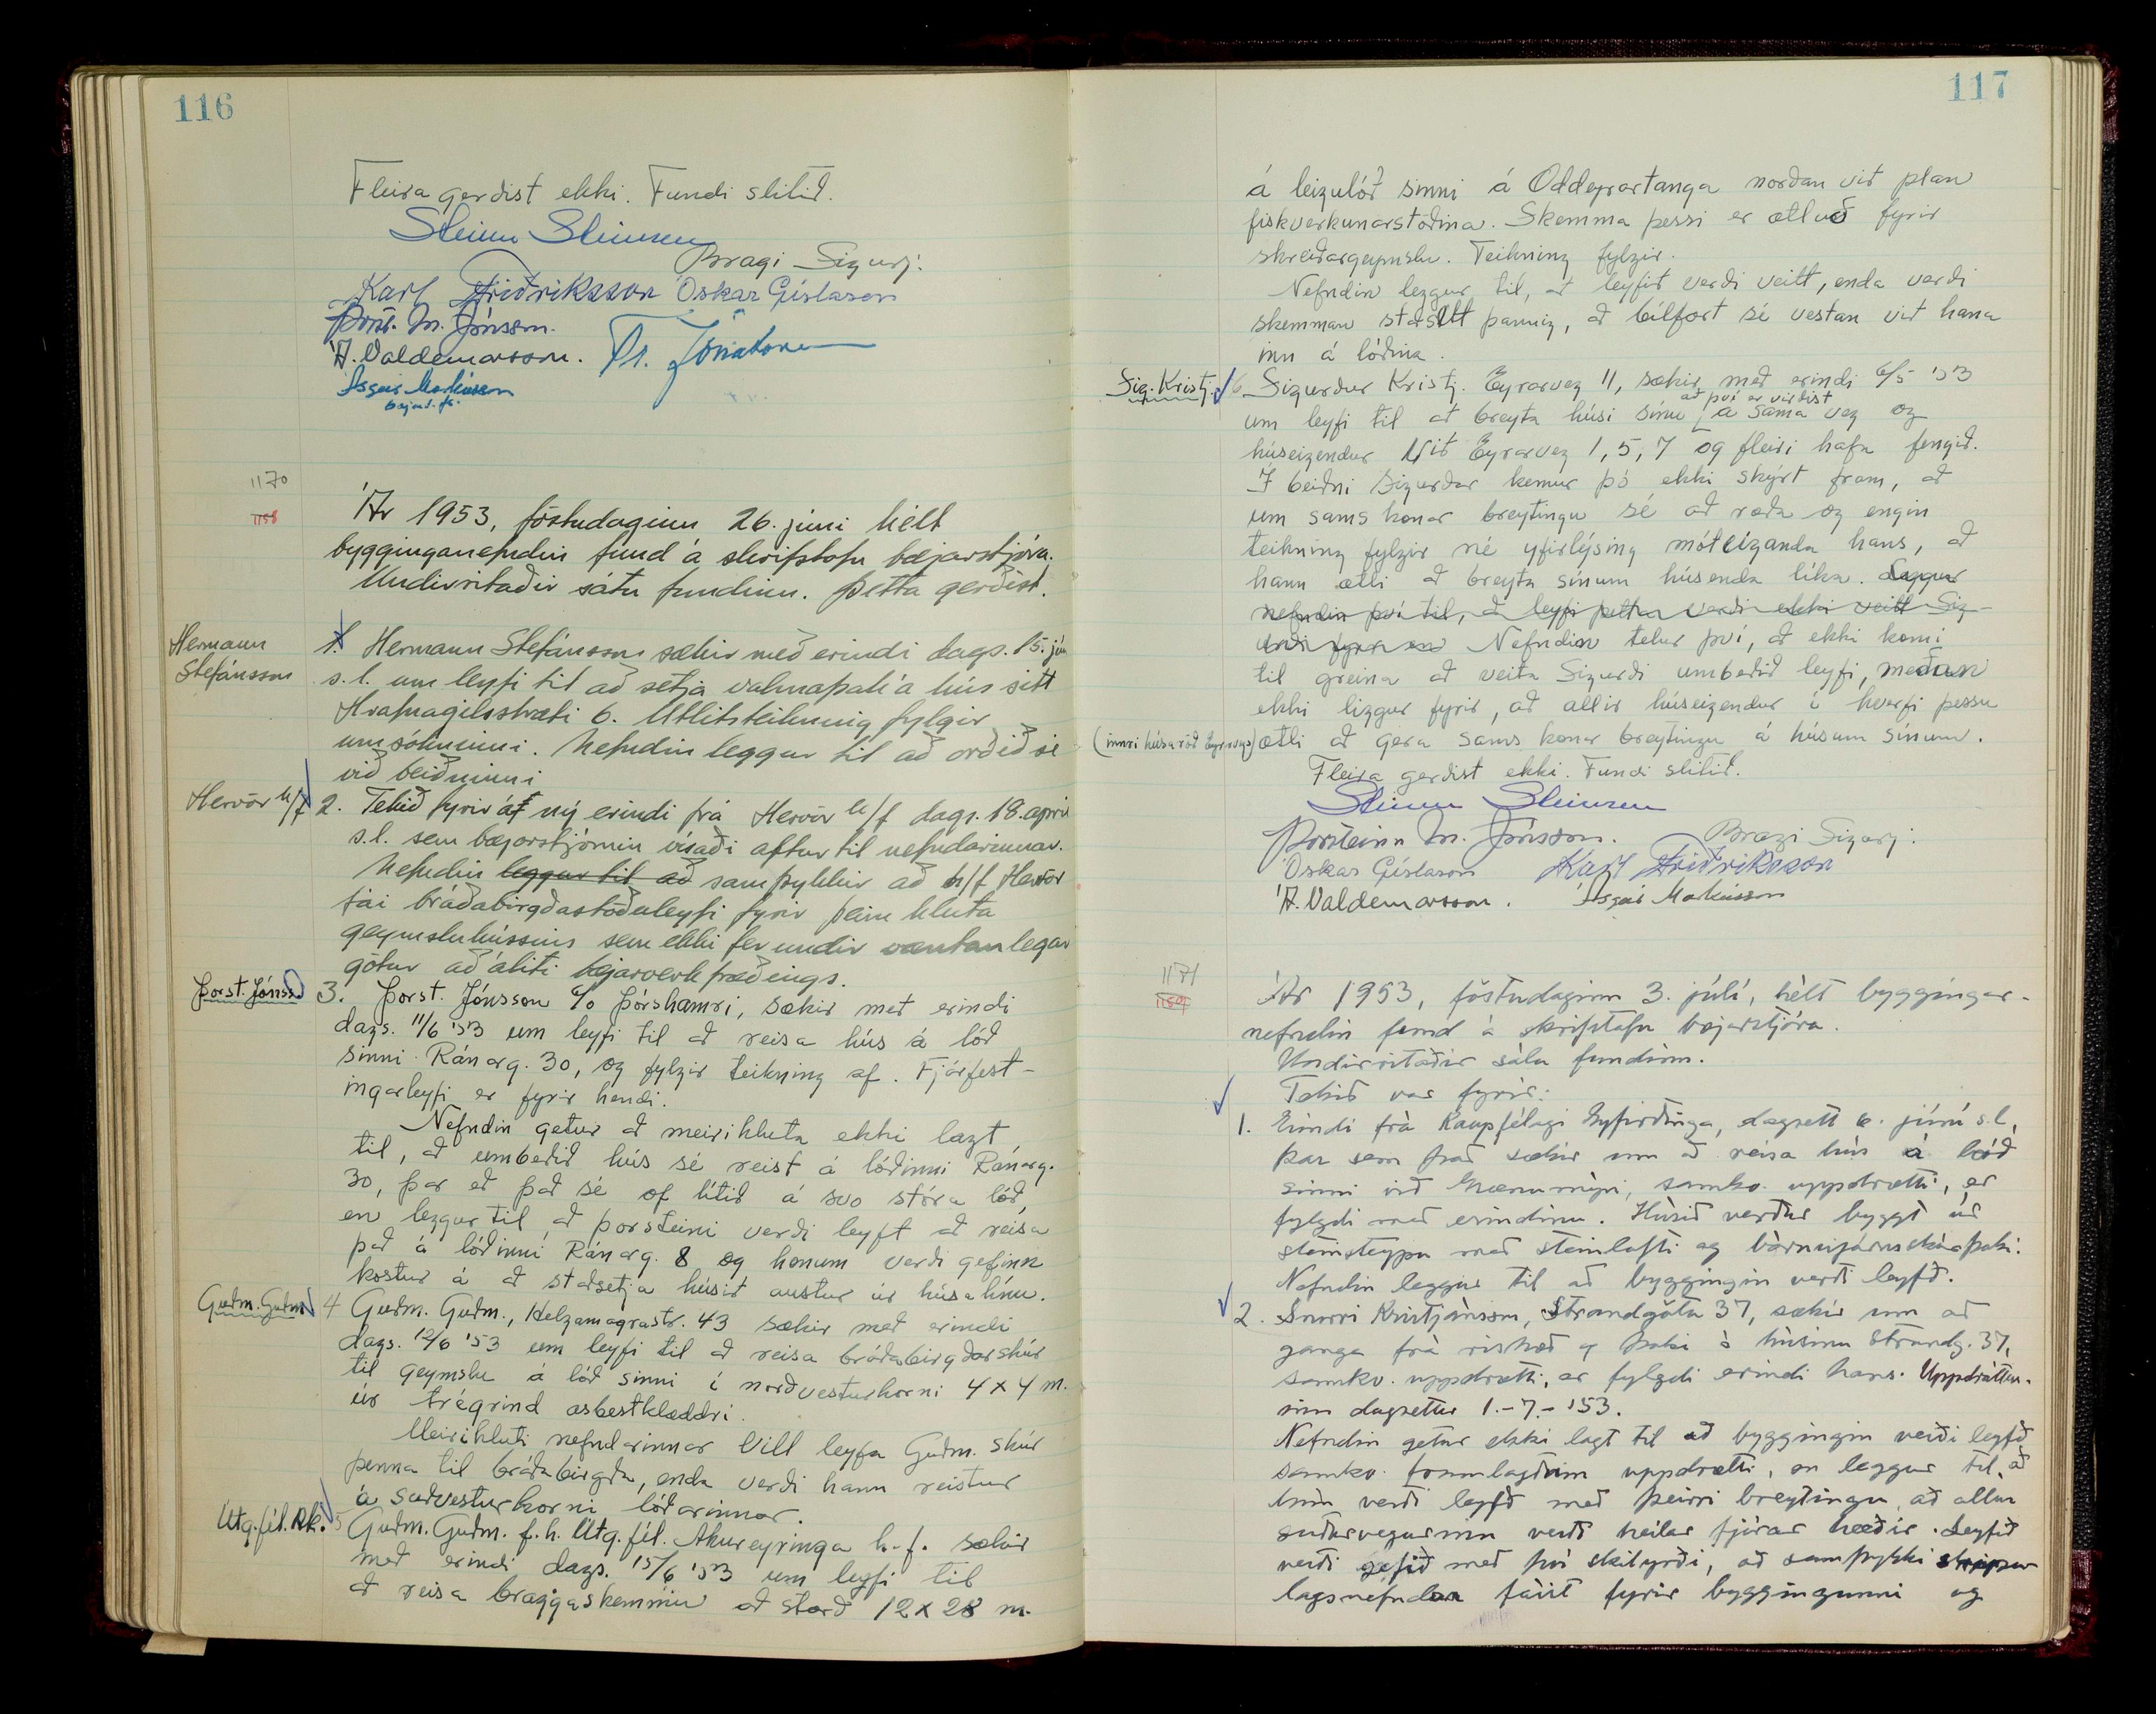 116
Fleira gerðist ekki. Fundi slitið.
Steinn Steinsen
Bragi Sigurj.
Karl Friðriksson Óskar Gíslason
Þorst. M. Jónsson.
Á. Valdemarsson. Tr. Jónatansson
Ásgeir Markússon
1170
1158
Ár 1953, föstudaginn 26. júní hélt
bygginganefndin fund á skrifstofu bæjarstjóra.
Undirritaðir sátu fundinn. Þetta gerðist.
Hermann
Stefánsson
1. Hermann Stefánsson sækir með erindi dags. 15. jún
s.l. um leyfi til að setja valmaþak á hús sitt
Hrafnagilsstræti 6. Útlitsteikning fylgir
umsókninni. Nefndin leggur til að orðið sé
við beiðninni
Hervör h/f
2. Tekið fyrir af ný erindi frá Hervör h/f dags. 18. apríl
s.l. sem bæjarstjórnin vísaði aftur til nefndarinnar.
Nefndin leggur til að samþykkir að h/f Hervör
fái bráðabirgðastöðuleyfi fyrir þeim hluta
geymsluhússins sem ekki fer undir væntanlegar
götur að áliti bæjarverkfræðings.
Þorst. Jónss
3. Þorst. Jónsson c/o Þórshamri, sækir með erindi
dags. 11/6 '53 um leyfi til að reisa hús á lóð
sinni Ránarg. 30, og fylgir teikning af. Fjárfest-
ingarleyfi er fyrir hendi.
Nefndin getur að meirihluta ekki lagt
til, að umbeðið hús sé reist á lóðinni Ránarg.
30, þar eð það sé of lítið á svo stóra lóð,
en leggur til að Þorsteini verði leyft að reisa
það á lóðinni Ránarg. 8 og honum verði gefinn
kostur á að staðsetja húsið austur úr húsalínu.
Guðm. Guðm
4 Guðm. Guðm., Helgamagrastr. 43 sækir með erindi
dags. 12/6 '53 um leyfi til að reisa bráðabirgðaskúr
til geymslu á lóð sinni í norðvesturhorni 4 x 4 m.
úr trégrind asbestklæddri.
Meirihluti nefndarinnar vill leyfa Guðm. skúr
þenna til bráðabirgða, enda verði hann reistur
á suðvesturhorni lóðarinnar.
Útg.fél. Ak.
5 Guðm. Guðm. f.h. Útg.fél. Akureyringa h.f. sækir
með erindi dags. 15/6 '53 um leyfi til
að reisa braggaskemmu að stærð 12 x 28 m.
117
á leigulóð sinni á Oddeyrartanga norðan við plan
fiskverkunarstöðina. Skemma þessi er ætluð fyrir
skreiðargeymslu. Teikning fylgir.
Nefndin leggur til, að leyfið verði veitt, enda verði
skemman staðsett þannig, að bílfært sé vestan við hana
inn á lóðina.
Sig. Kristj.
6 Sigurður Kristj. Eyrarveg 11, sækir með erindi 6/5 '53
að því er virðist
um leyfi til að breyta húsi sínu á sama veg og
húseigendur við Eyrarveg 1, 5, 7 og fleiri hafa fengið.
Í beiðni Sigurðar kemur þó ekki skýrt fram, að
um sams konar breytingu sé að ræða og engin
teikning fylgir né yfirlýsing móteiganda hans, að
hann ætli að breyta sínum húsenda líka. Leggur
nefndin því til, að leyfi þetta verði ekki veitt Sig-
urði fyrr en Nefndin telur því, að ekki komi
til greina að veita Sigurði umbeðið leyfi, meðan
ekki liggur fyrir, að allir húseigendur í hverfi þessu
(innri húsaröð Eyrarvegs) ætli að gera sams konar breytingu á húsum sínum.
Fleira gerðist ekki. Fundi slitið.
Steinn Steinsen
Þorsteinn M. Jónsson. Bragi Sigurj.
Óskar Gíslason Karl Friðriksson
Á. Valdemarsson. Ásgeir Markússon
1171
1159
Ár 1953, föstudaginn 3. júlí, hélt byggingar-
nefndin fund á skrifstofu bæjarstjóra.
Undirritaðir sátu fundinn.
Tekið var fyrir:
1. Erindi frá Kaupfélagi Eyfirðinga, dagsett 6. júní s.l,
þar sem það sækir um að reisa hús á lóð
sinni við Grænumýri, samkv. uppdrætti, er
fylgdi með erindinu. Húsið verður byggt úr
steinsteypu með steinlofti og bárujárnsskúrþaki.
Nefndin leggur til að byggingin verði leyfð.
2. Snorri Kristjánsson, Strandgötu 37, sækir um að
ganga frá rishæð og þaki á húsinu Strandg. 37,
samkv. uppdrætti, er fylgdi erindi hans. Uppdráttur-
inn dagsettur 1.-7.-'53.
Nefndin getur ekki lagt til að byggingin verði leyfð
samkv. framlagðum uppdrætti, en leggur til, að
hún verði leyfð með þeirri breytingu, að allur
suðurvegurinn verði heilar fjórar hæðir. Leyfið
verði gefið með því skilyrði, að samþykki skipu
lagsnefndar fáist fyrir byggingunni og